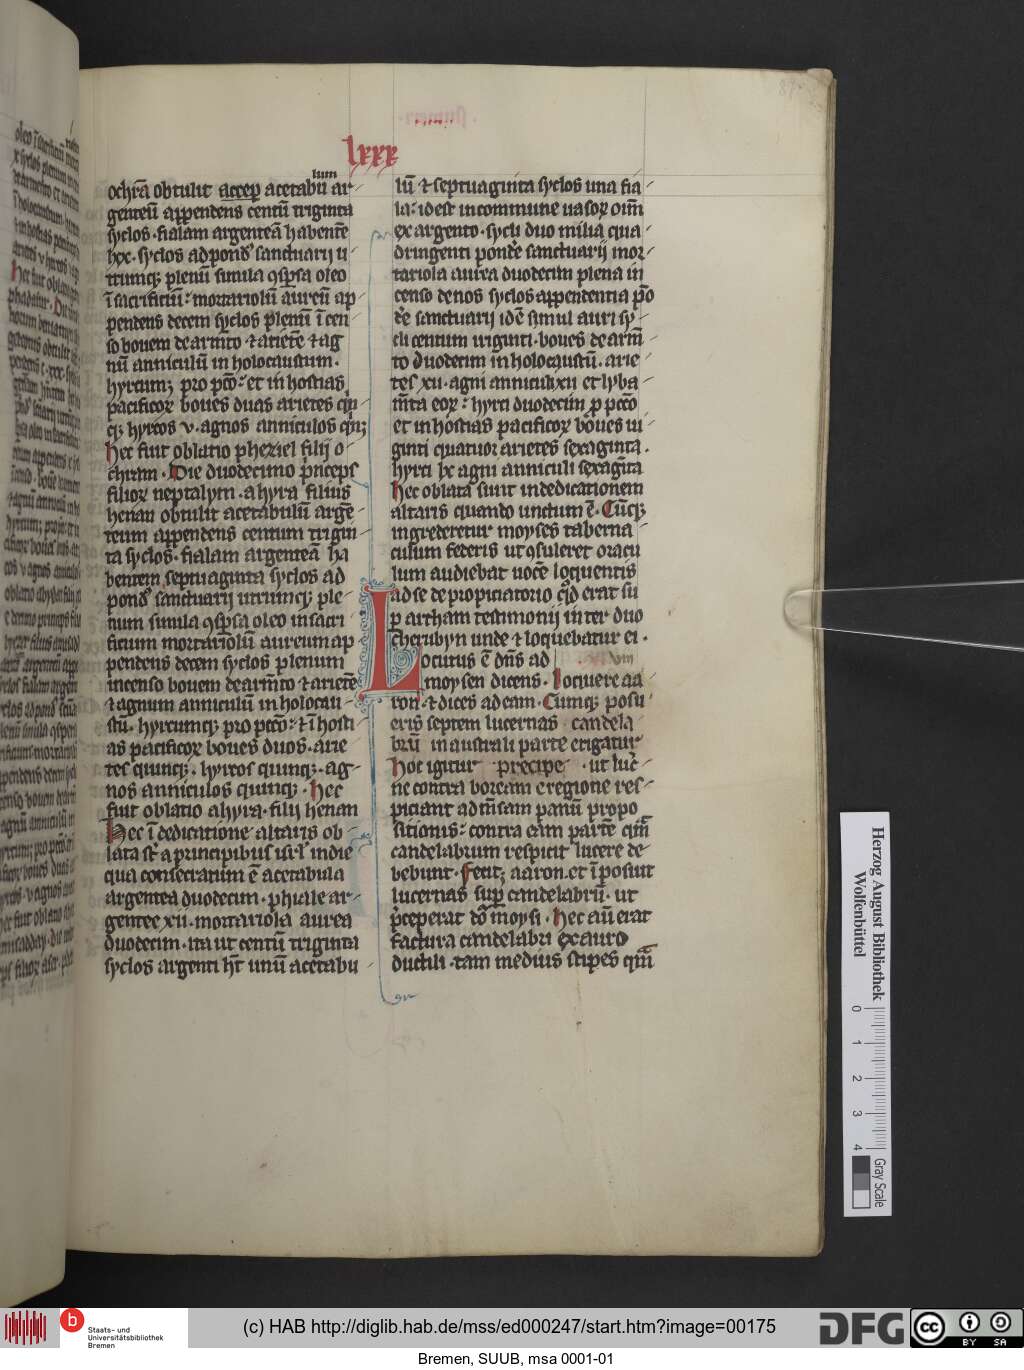 lxxx
lum
ochrā obtulit accep acetabū ar
genteū appendens centū triginta
syclos. fialam argenteā habentē
lxx. syclos ad pond' sanctuarij u
trumq; plenū simila ɔspsa oleo
ī sacrificiū: mortariolū aureū ap
pendens decem syclos plenū īcen
so bouem de armto ⁊ arietē ⁊ ag
nū anniculū in holocaustum.
hyrcum; pro pctō: et in hostias
pacificoꝝ boues duas arietes qn
q; hyrcos v. agnos anniculos qnq;
Hec fuit oblatio pheziel filij o
chran. Die duodecimo pnceps
filioꝝ neptalym. ahyra filius
henan obtulit acetabulū argē
teum appendens centum trigin
ta syclos. fialam argenteā ha
bentem septuaginta syclos ad
pond' sanctuarij utrumq; ple
num simila ɔspsa oleo in sacri
ficium mortariolū aureum ap
pendens decem syclos plenum
incenso bouem de armto ⁊ arietē
⁊ agnum anniculū in holocau
stū. hyrcumq; pro pctō: ⁊ ī hosti
as pacificoꝝ boues duos. arie
tes quinq;. hyrcos quinq;. ag
nos anniculos quinq;. Hec
fuit oblatio ahyra. filij henan
Hec ī dedicatione altaris ob
lata st a principibus isrl' in die
qua consecratum ē acetabula
argentea duodecim. phiale ar
gentee xii. mortariola aurea
duodecim. ita ut centū triginta
syclos argenti hnt unū acetabu
lū ⁊ septuaginta syclos una fia
la: id est in commune uasoꝝ oīm
ex argento. sycli duo milia qua
dringenti pondere sanctuarij mor
tariola aurea duodecim plena in
censo denos syclos appendentia pō
dere sanctuarij idē simul auri sy
cli centum uiginti. boues de arm
to duodecim in holocaustū. arie
tes xii. agni anniculi xii et lyba
mta eoꝝ: hyrci duodecim p pctō
et in hostias pacificoꝝ boues ui
ginti quatuor arietes sexaginta.
hyrci lx agni anniculi sexagita
Hec oblata sunt in dedicationem
altaris quando unctum ē. Cūq;
ingrederetur moyses taberna
culum federis ut ɔsuleret oracu
lum audiebat uocē loquentis
ad se de propiciatorio qd erat su
p archam testimonij inter duo
cherubyn unde ⁊ loquebatur ei.
Locutus ē dns ad viii
moysen dicens. loquere aa
ron. ⁊ dices ad eam. Cumq; posu
eris septem lucernas candela
brū in australi parte erigatur
Hoc igitur precipe ut luc
ne contra boream e regione res
piciant ad msam panū propo
sitionis: contra eam partē quā
candelabrum respicit lucere de
bebunt. Fecitq; aaron. et īposuit
lucernas sup candelabrū. ut
pceperat dō moysi. Hec aū erat
factura candelabri ex auro
ductili. tam medius stipes quā
Herzog August Bibliothek
Wolfenbüttel
0 1 2 3 4
Gray Scale
b
Staats- und
Universitätsbibliothek
Bremen
(c) HAB http://diglib.hab.de/mss/ed000247/start.htm?image=00175
DFG
cc BY SA
Bremen, SUUB, msa 0001-01